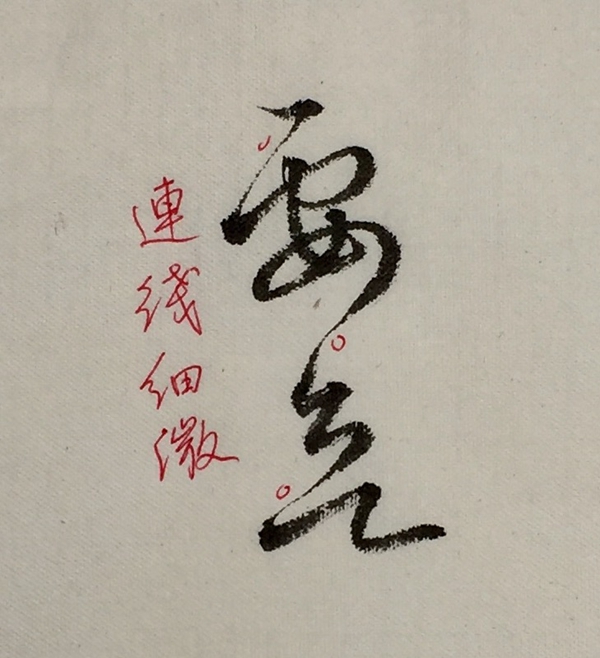 要
連线细微